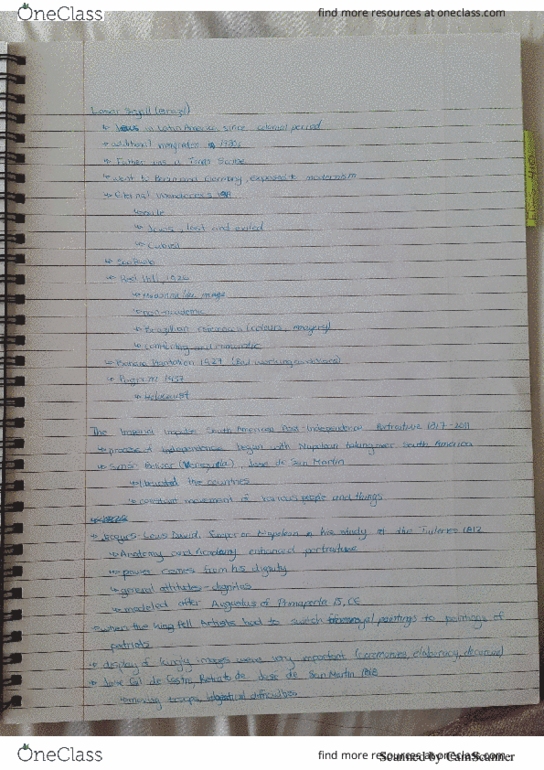 OneClass
find more resources at oneclass.com
Lasar Segall (Brazil)
↳ Jews in Latin America, since colonial period
↳ additional immigrated 1920s
↳ Father was a Torah Scribe
↳ went to Germany, exposed to modernism
↳ Eternal wanderers 1919
↳ exile
↳ Jews, lost and exiled
↳ Cubist
↳ Sao Paulo
↳ Red Hill, 1926
↳ Madonna like image
↳ Brazilian (colours, imagery)
↳ comforting and romantic
↳ Banana Plantation 1927
↳ Pogrom 1937
↳ Holocaust
The South American Post-Independence Portraiture 1817-2011
↳ process of independence began with Napoleon taking over South America
↳ Simon Bolivar (Venezuela), Jose de San Martin
↳ liberated the countries
↳ constant movement of various people and things
↳ Jacques-Louis David, Emperor Napoleon in his study at the Tuileries 1812
↳ Anatomy and enhanced portraiture
↳ power comes from his dignity
↳ general attitude - dignitas
↳ modeled after Augustus of Primaporta 15, CE
↳ when the king fell Artists had to switch from royal paintings to paintings of
patriots
↳ display of kingly images were very important (ceremonies, elaboracy, decorum)
↳ Jose Gil de Castro, Retrato de Jose de San Martin 1818
↳ moving troops logistical difficulties
OneClass
find more resources at oneclass.com
Scanned by CamScanner